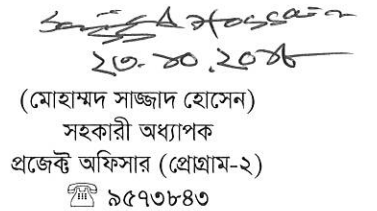 ২৩.১০.২০১৮
(মোহাম্মদ সাজ্জাদ হোসেন)
সহকারী অধ্যাপক
প্রজেক্ট অফিসার (প্রোগ্রাম-২)
☎ ৯৫৭৩৮৪৩